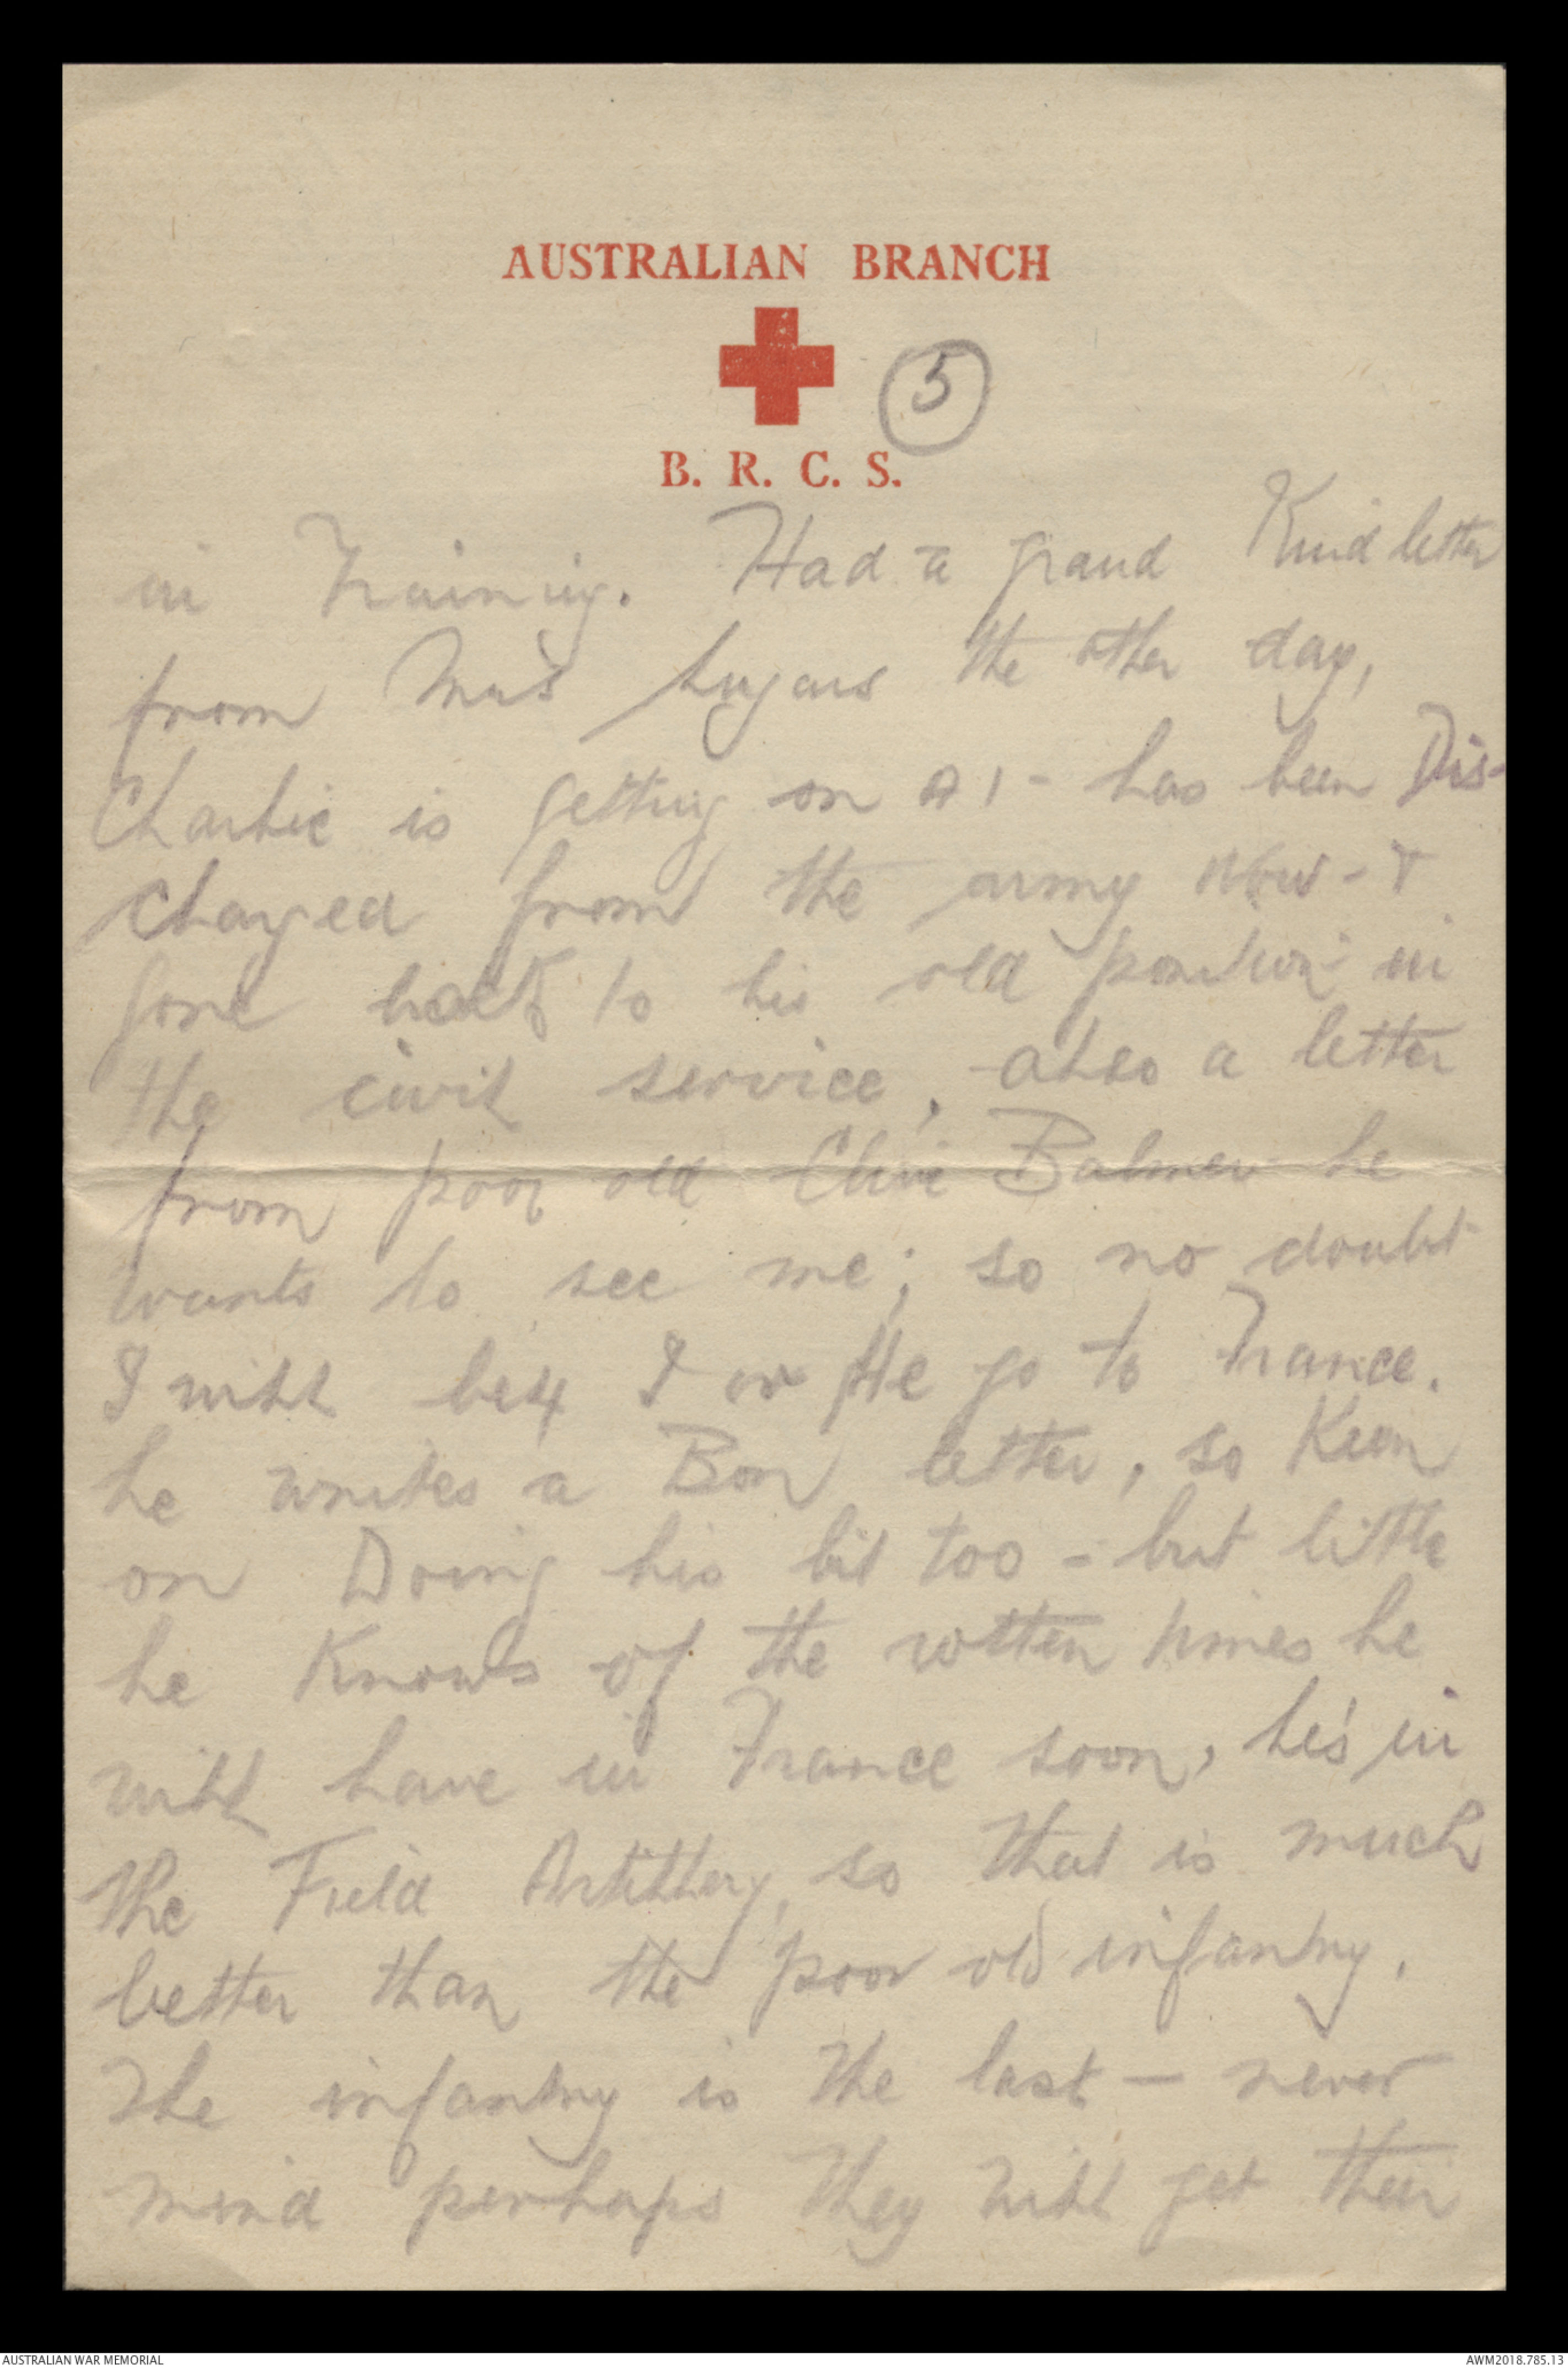 AUSTRALIAN BRANCH
5
B. R. C. S.
in Training. Had a grand Kind letter
from Mrs the other day,
Charlie is getting on A1 - has been Dis-
charged from the army now - &
gone back to his old position in
the civil service, also a letter
from poor old Clive Balmer he
wants to see me; so no doubt
I will be4 I or He go to France.
he writes a Bon letter, so Keen
on Doing his bit too - but little
he Knows of the rotten times he
will have in France soon, he's in
the Field Artillery, so that is much
better than the poor old infantry.
The infantry is the last - never
mind perhaps they will get their
AUSTRALIAN WAR MEMORIAL
AWM2018.785.13